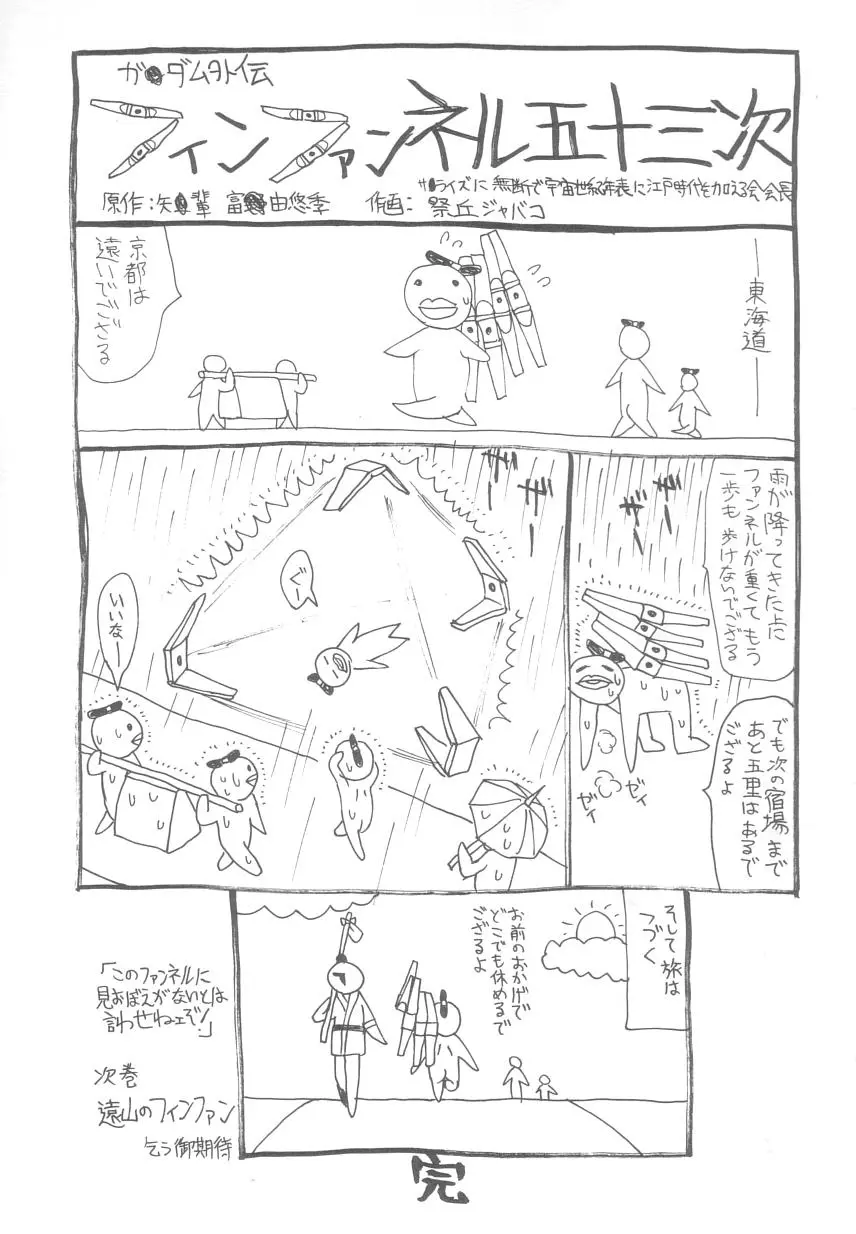 ガ●ダム外伝
フィンファンネル五十三次
サ●ライズに無断で宇宙世紀年表に江戸時代を加える会会長
原作：矢●輩 富●由悠季 作画：祭丘ジャバコ
―東海道―
京都は
遠いでござる
雨が降ってきた上に
ファンネルが重くてもう
一歩も歩けないでござる
でも次の宿場まで
あと五里はあるで
ござるよ
ギャー
ギャー
ゼィ
ゼィ
ギャー
ギャー
ぐー
いいなー
そして旅は
つづく
お前のおかげで
どこでも休めるで
ござるよ
「このファンネルに
見おぼえがないとは
言わせねェぞ!」
次巻
遠山のフィンファン
乞う御期待
完